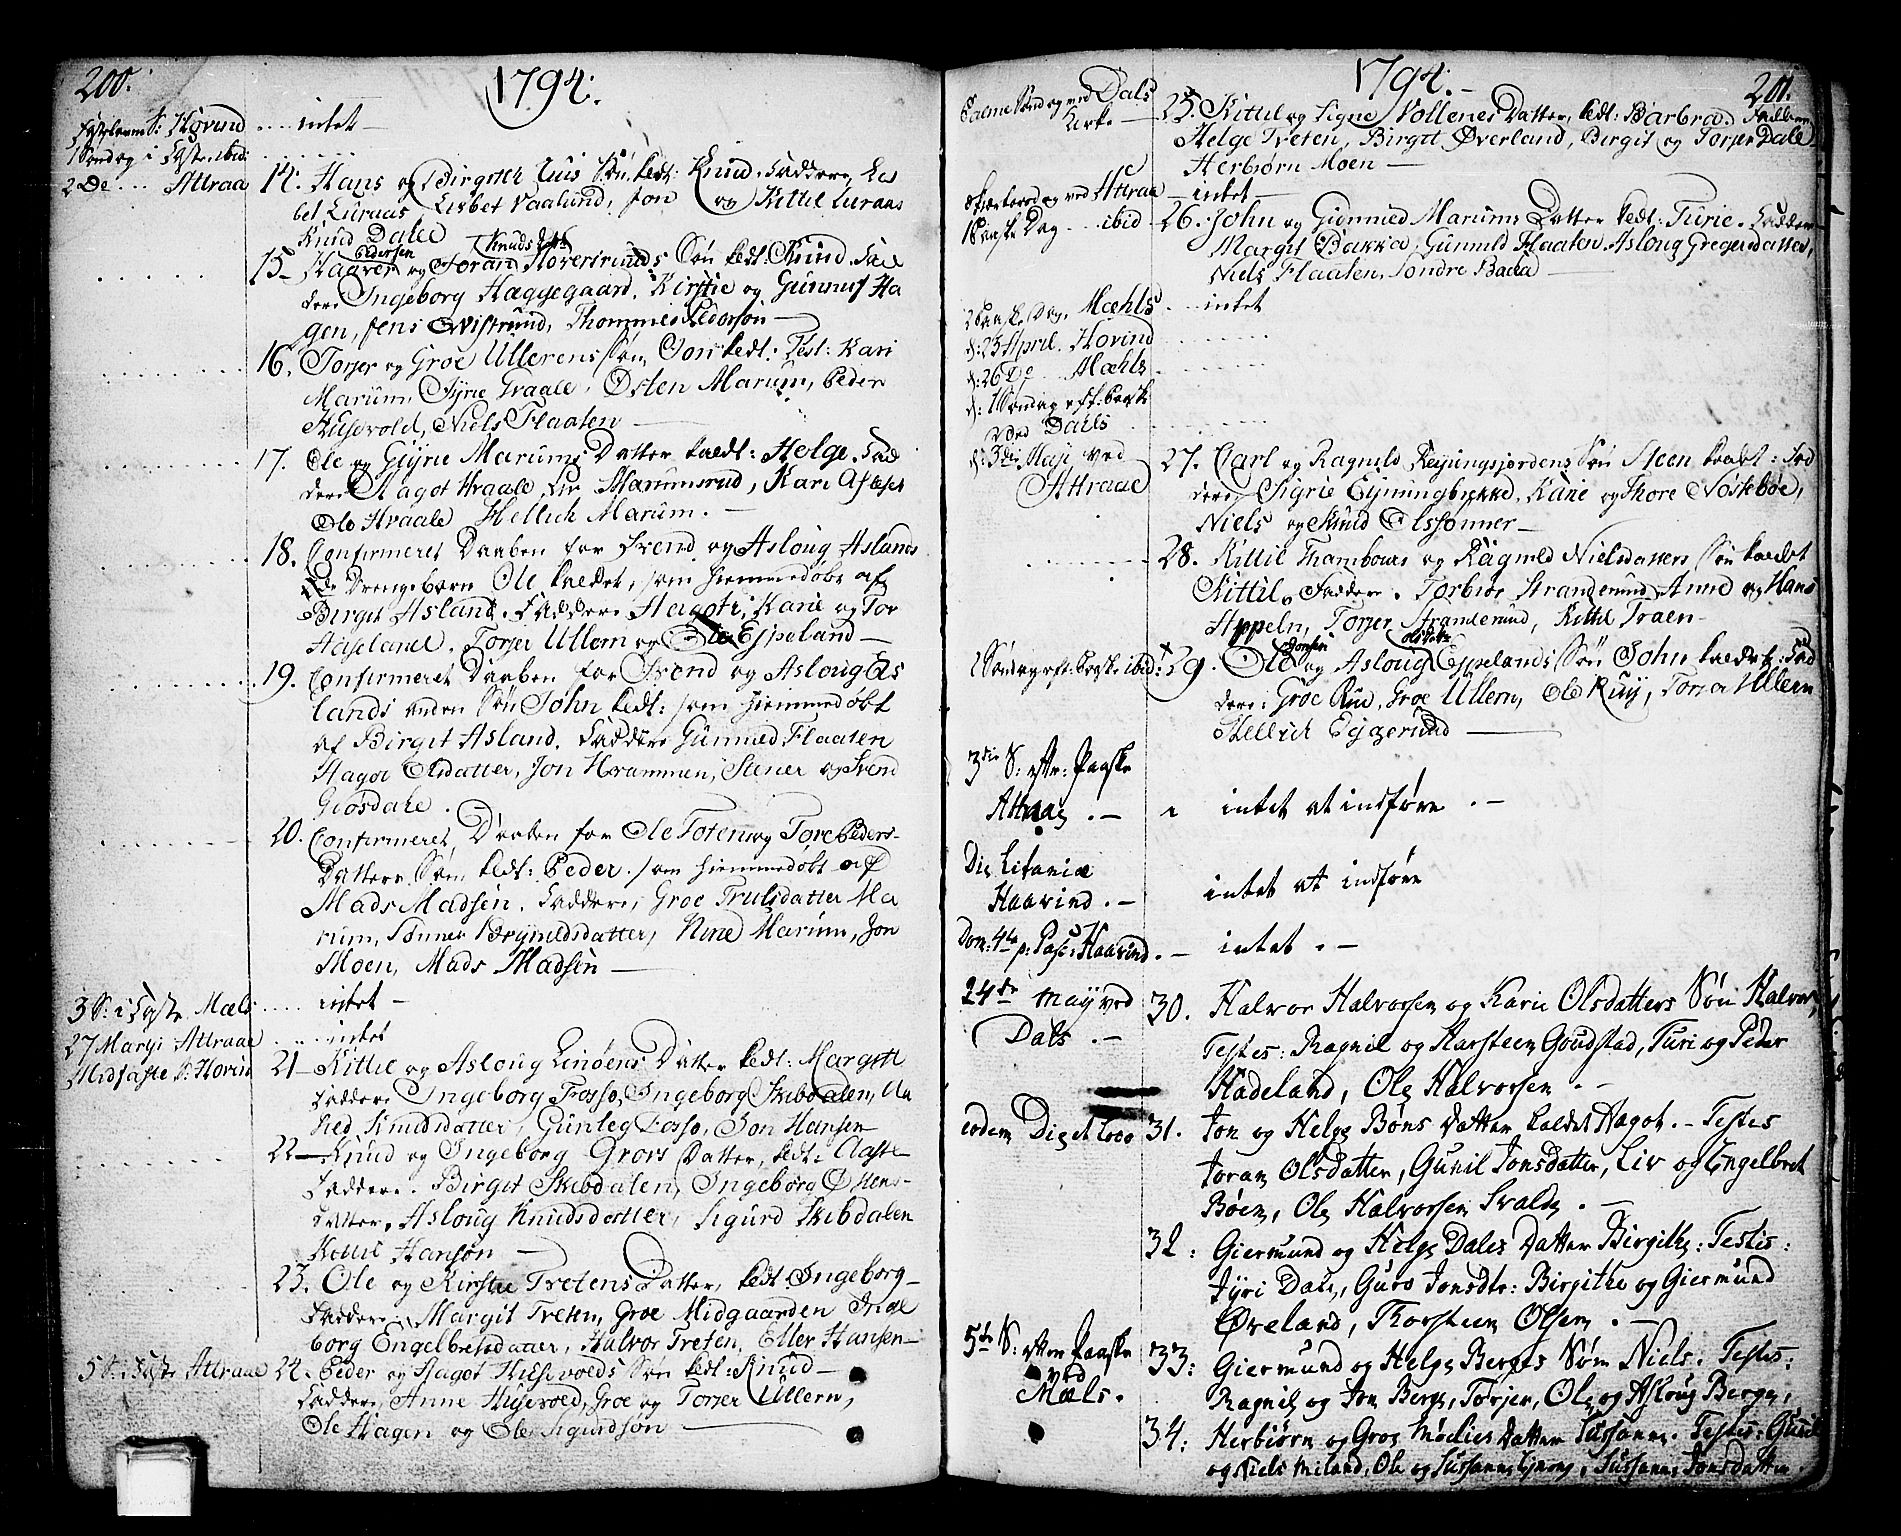 200.
1794.
S: Hovind .... intet —
1 Søndag i Faste ibid: .......
2 De .... Attraa 14. Hans og Birgith Luis Søn kedt: Knud. Faddere, Lis
bet Luraas Lisbet Vaalund, Jon og Kittil Luraas
Knud Dale
Pedersen Knudsdatter
15. Haaver og Joran Hovertrunds Søn kedt: Knud. Fad
dere Ingeborg Hæggegaard. Kirstie og Gunnuf Ha
gen, Jens Qvistrund, Thommes Pederson —
16. Torjer og Groe Ullerens Søn, Jon kedt. Test: Kari
Marum, Gyrie Graale, Østen Marum, Peder
Husevold, Niels Flaaten —
17. Ole og Gyrie Marums Datter kaldt: Helge. Fad
dere Aagot Hraale, Liv Marumsrud, Kari
Ole Hraale Hellich Marum. —
18. Confirmeret Daaben for Svend og Asloug Aslands
Drengebørn Ole kaldet, som hiemmedøbt af
Birgit Asland. Faddere Hagoti, Karie og Tor
Haseland. Torjer Ullern og Ole Ejpeland —
19. Confirmeret Daaben for Svend og Asloug As
lands anden Søn John kedt: som hiemmedøbt
af Birgit Asland. Faddere Gunmed Flaaten
Hagot Olsdatter, Jon Hrammen, Stener og Svend
Giøsdahl.
20. Confirmeret Daaben for Ole Foten og Tore Peders-
Datters Søn kedt: Peder. som hiemmedøbt af
Mads Madsen. Faddere, Groe Trulsdatter Ma
rum, Sønnev Brynieldsdatter, Marum, Jon
Moen, Mads Madsen —
3 S: i Faste Mæls .... intet —
27 Martji Attraae ..... intet
Midfaste S: Hovin 21 — Kittil og Asloug Linøens Datter kedt: Margitt
Faddere Ingeborg Fosso, Ingeborg Skibdalen, An
ned Knudsdatter, Gunleg Fosso, Jon Hansen
22 — Knud og Ingeborg Grovs Datter, kedt: Aaste
Faddere. Birgit Skibdalen, Ingeborg Østens-
datter. Asloug Knudsdatter, Sigurd Skibdalen
Kittil Hansøn —
23. Ole og Kirstie Tretens Datter, kedt: Ingeborg —
Faddere. Margit Treten, Groe Midgaarden Inge
borg Engelbretsdatter, Halvor Treten, Eller Hansen —
5 S: i Faste Attraae 24. Peder og Hagot Husevolds Søn kedt: Knud —
Faddere, Anne Husevold, Groe og Torjer Ullern,
Ole Hagen og Ole Sigurdsøn —
1794. —
201.
Palme Søndag ved Dals
Kirke —
25. Kittil og Signe Vollenes Datter, kedt: Barbroe. Faddere
Helge Treten, Birgit Øverland, Birgit og Torjer Dale
Herbjørn Moen —
Skiærtorsdag ved Attraa — intet —
1 Paaske Dag ... ibid 26. John og Giønmed Marums Datter kedt: Turie. Faddere
Margit Bakka, Gunuld Flaaten, Asloug Gregersdatter,
Niels Flaaten, Sondre Bakka —
2 Paaske Dag, Mæhls ... intet
d: 25 April. Hovind ........
d: 26 De ... Mæhls ........
d: 1 Søndag eft: Paaske
ved Dals ........
d: 3die Maji ved
Attraae
27. Carl og Ragnild Rejsingsjordens Søn Steen kaldt: Fad
dere, Sigrie Ejningbekke, Karie og Thore Nostebøe,
Niels og Knud Olssønner —
28. Kittil Thambours og Ragnild Nielsdatters Søn kaldt
Kittil. Faddere. Torbiør Strandemund, Anne og Hans
Appeln, Torjer Stramlerund, Kittil Traen —
Jonsen Olsdatter
2 Søndag eft: Paaske ibid: 29. Ole og Asloug Ejpelands Søn John kaldet: Fad
dere: Groe Rue, Groe Ullern, Ole Ruy, Torjer Ullern
Hellich Eggerund —
3die S: efter Paaske
Attraa. — intet at indføre. —
Die Litaniæ
Haavind. — intet at indføre
Dom: 4ta p: Pasc: Haavind. — intet. —
24de May ved
Dals. —
30. Halvor Halvorsen og Karie Olsdatters Søn Halvor,
Testes: Ragnil og Harsteen Goudstad, Turi og Peder
Hadeland, Ole Halvorsen. —
eodem Die et Loco 31. Jon og Helge Bøns Datter kaldet Aagot. — Testes
Joran Olsdatter, Gunil Jonsdatter, Liv og Engelbret
Bøen, Ole Halvorsen Svalde. —
32: Giermund og Helge Dales Datter Birgithe: Testis:
Jyri Dale, Guro Jonsdtr: Birgithe og Giermund
Øveland, Thorsteen Olsen. —
5te S: efter Paaske
ved
Mæls.
33: Giermund og Helge Berges Søn Niels. Testes:
Ragnil og Jon Berge, Torjer, Ole og Asloug Berge,
34: Herbiørn og Groe Moelies Datter Sussanne. Testes: Gunil
og Niels Miland, Ole og Sussanne , Sussanne Jonsdatter